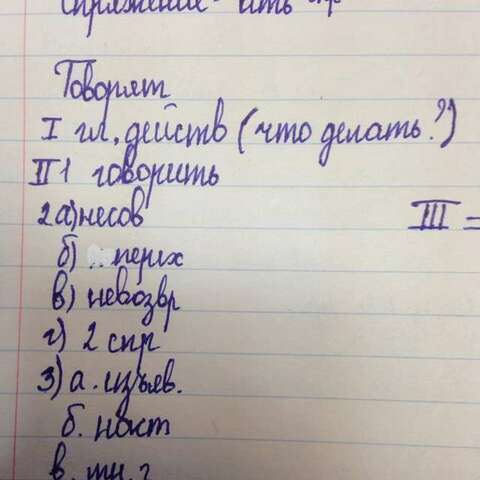 Спряжение - ить
Говорят
I гл. действ (что делать?)
II 1 говорить
2 а) несов
III =
б) перех
в) невозвр
г) 2 спр
3) а. изъяв.
б. наст
в. мн. г